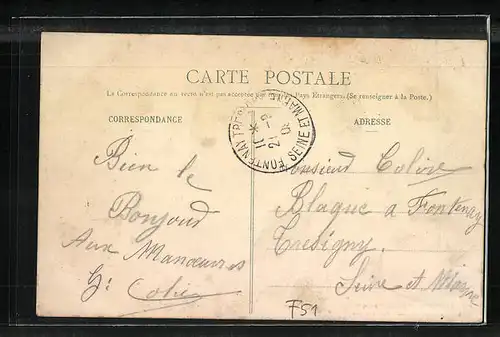 CARTE POSTALE
La Correspondance au recto n'est pas acceptée par tous les Pays Etrangers. (Se renseigner à la Poste.)
CORRESPONDANCE
ADRESSE
FONTENAY-TRESIGNY
SEINE ET MARNE
21 -9
Bien le
Bonjour
Aux Manœuvres
Monsieur
Blaque a Fontenay
Tresigny
Seine et Marne
F51